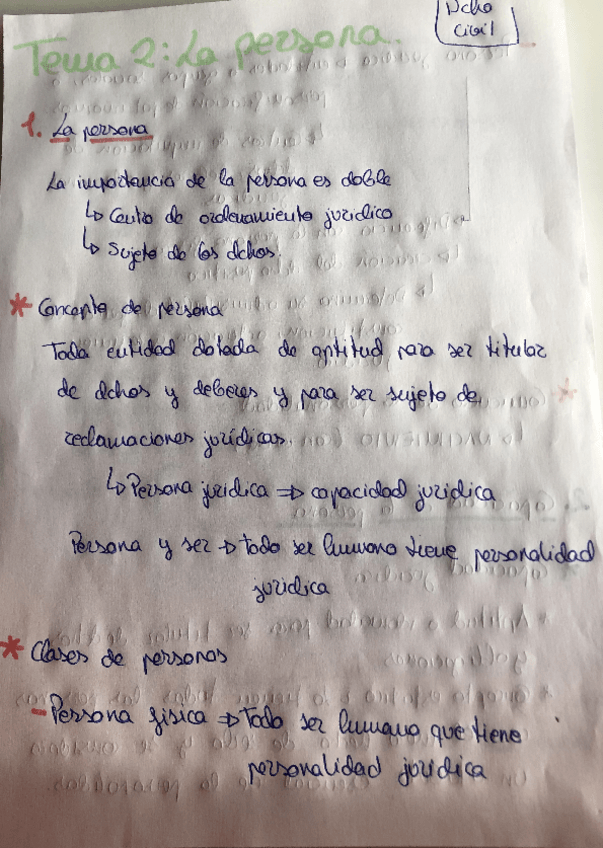 Dcho
Civil
Tema 2: La persona.
1. La persona
La importancia de la persona es doble
↳ Centro de ordenamiento jurídico
↳ Sujeto de los dchos.
* Concepto de persona
Toda entidad dotada de aptitud para ser titular
de dchos y deberes y para ser sujeto de
reclamaciones jurídicas.
↳ Persona jurídica ⇒ capacidad jurídica
Persona y ser → todo ser humano tiene personalidad
jurídica
* Clases de personas
- Persona física ⇒ Todo ser humano que tiene
personalidad jurídica